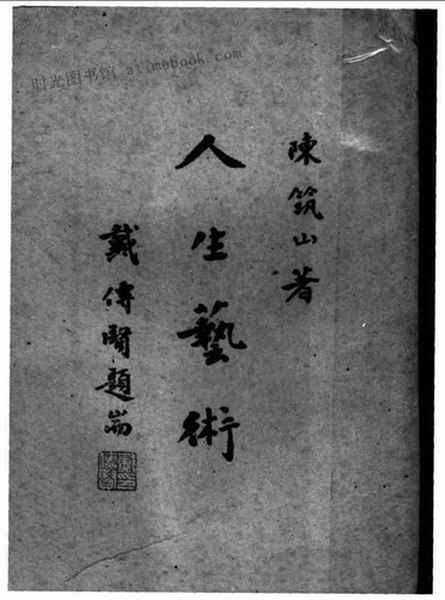 時光图书馆 atimebook.com
陳筑山著
人生藝術
戴傳賢題耑